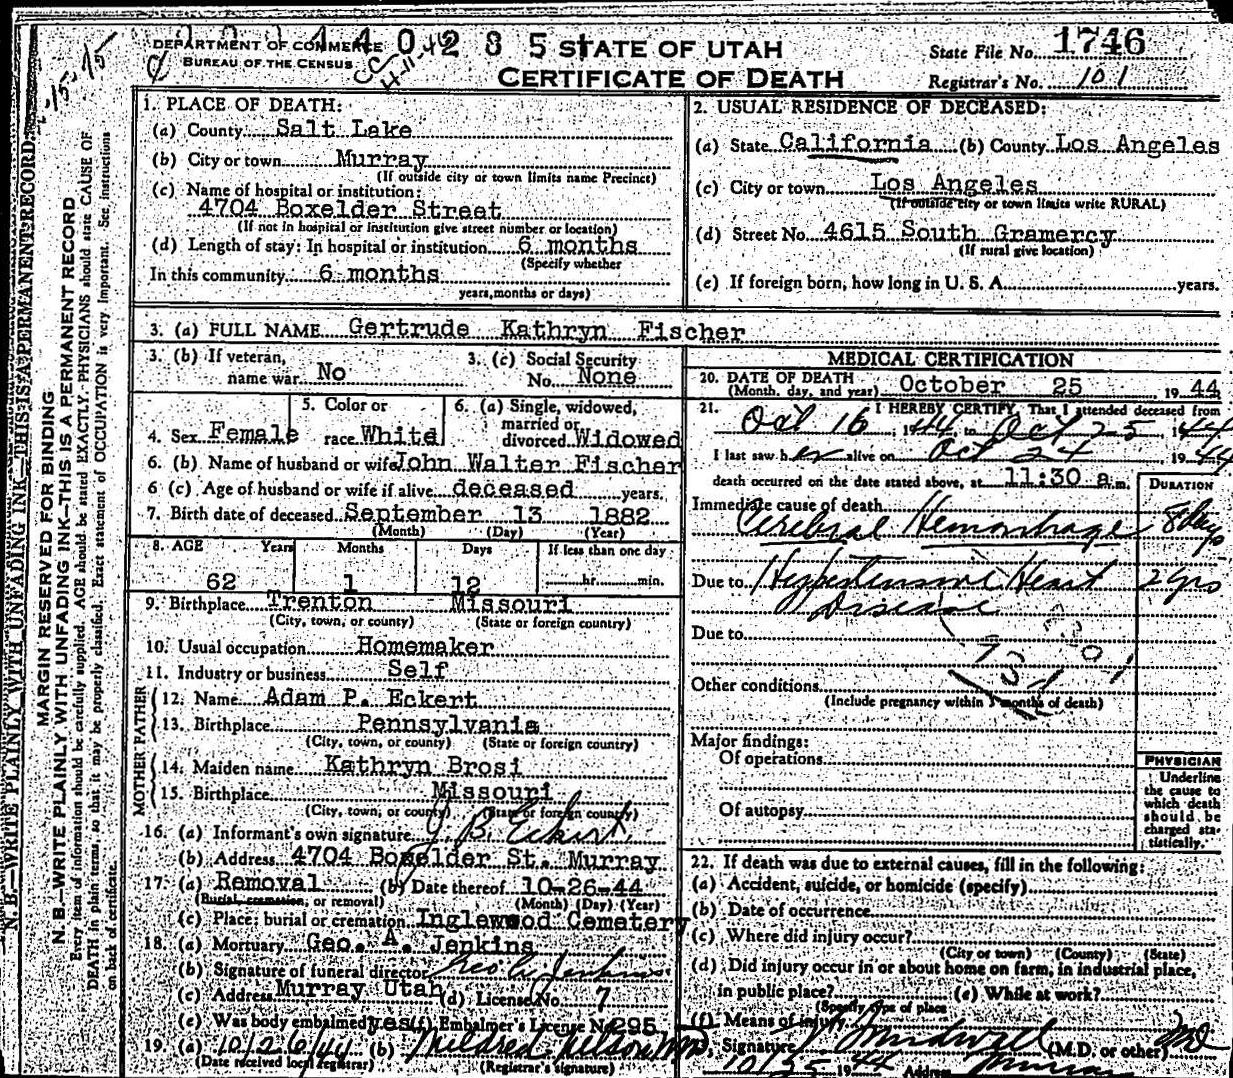 DEPARTMENT OF COMMERCE
BUREAU OF THE CENSUS
STATE OF UTAH
CERTIFICATE OF DEATH
State File No. 1746
Registrar's No. 101
1. PLACE OF DEATH:
(a) County Salt Lake
(b) City or town Murray
(If outside city or town limits name Precinct)
(c) Name of hospital or institution:
4704 Boxelder Street
(If not in hospital or institution give street number or location)
(d) Length of stay: In hospital or institution 6 months
(Specify whether
In this community 6 months
years, months or days)
2. USUAL RESIDENCE OF DECEASED:
(a) State California (b) County Los Angeles
(c) City or town Los Angeles
(If outside city or town limits write RURAL)
(d) Street No. 4615 South Gramercy
(If rural give location)
(e) If foreign born, how long in U. S. A. years.
3. (a) FULL NAME Gertrude Kathryn Fischer
3. (b) If veteran,
name war No
3. (c) Social Security
No. None
4. Sex Female
5. Color or
race White
6. (a) Single, widowed,
married or
divorced Widowed
6. (b) Name of husband or wife John Walter Fischer
6 (c) Age of husband or wife if alive deceased years.
7. Birth date of deceased September 13 1882
(Month) (Day) (Year)
8. AGE Years Months Days If less than one day
62 1 12 hr. min.
9. Birthplace Trenton Missouri
(City, town, or county) (State or foreign country)
10. Usual occupation Homemaker
11. Industry or business Self
FATHER
12. Name Adam P. Eckert
13. Birthplace Pennsylvania
(City, town, or county) (State or foreign country)
MOTHER
14. Maiden name Kathryn Brosi
15. Birthplace Missouri
(City, town, county) (State or foreign country)
16. (a) Informant's own signature J. B. Eckert
(b) Address 4704 Boxelder St. Murray
17. (a) Removal (b) Date thereof 10-26-44
(Burial, cremation, or removal) (Month) (Day) (Year)
(c) Place: burial or cremation Inglewood Cemetery
18. (a) Mortuary Geo. A. Jenkins
(b) Signature of funeral director Geo A Jenkins
(c) Address Murray Utah (d) License No. 7
(e) Was body embalmed yes (f) Embalmer's License No 295
19. (a) 10/26/44 (b) Mildred Nelson
(Date received local registrar) (Registrar's signature)
MEDICAL CERTIFICATION
20. DATE OF DEATH
(Month, day, and year) October 25 1944
21. I HEREBY CERTIFY, That I attended deceased from
Oct 16, 1944 to Oct 25, 1944
I last saw her alive on Oct 24 1944
death occurred on the date stated above, at 11:30 a.m.
DURATION
Immediate cause of death
Cerebral Hemorrhage 8 days
Due to Hypertensive Heart 2 yrs
Disease
Due to
Other conditions
(Include pregnancy within 3 months of death)
Major findings:
Of operations
Of autopsy
PHYSICIAN
Underline
the cause to
which death
should be
charged sta-
tistically.
22. If death was due to external causes, fill in the following:
(a) Accident, suicide, or homicide (specify)
(b) Date of occurrence
(c) Where did injury occur?
(City or town) (County) (State)
(d) Did injury occur in or about home on farm, in industrial place,
in public place? (e) While at work?
(Specify type of place
(f) Means of injury
Signature (M.D. or other) MD
10/25 1944 Address Murray
MARGIN RESERVED FOR BINDING
N. B.—WRITE PLAINLY WITH UNFADING INK—THIS IS A PERMANENT RECORD
Every item of information should be carefully supplied. AGE should be stated EXACTLY. PHYSICIANS should state CAUSE OF
DEATH in plain terms, so that it may be properly classified. Exact statement of OCCUPATION is very important. See instructions
on back of certificate.
N. B.—WRITE PLAINLY WITH UNFADING INK—THIS IS A PERMANENT RECORD